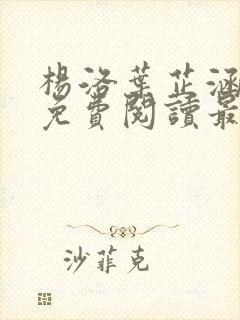 楊洛葉芷涵
免費閱讀最
沙菲克